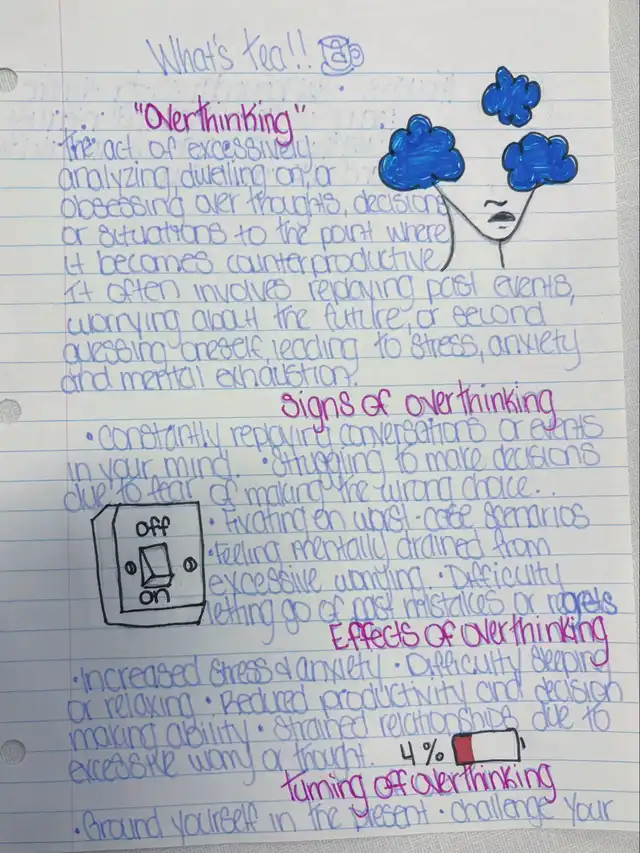 What's tea!!
"Overthinking"
the act of excessively
analyzing, dwelling on, or
obsessing over thoughts, decisions
or situations to the point where
it becomes counterproductive
It often involves replaying past events,
worrying about the future, or second
guessing oneself, leading to stress, anxiety
and mental exhaustion.
Signs of overthinking
• Constantly replaying conversations or events
in your mind. • Struggling to make decisions
due to fear of making the wrong choice..
• Fixating on worst-case scenarios
• Feeling mentally drained from
excessive wanting • Difficulty
letting go of past mistakes or regrets
off
on
Effects of overthinking
• Increased stress & anxiety • Difficulty sleeping
or relaxing • Reduced productivity and decision
making ability • Strained relationships due to
excessive worry or thought.
4%
Turning off overthinking
• Ground yourself in the present • challenge your